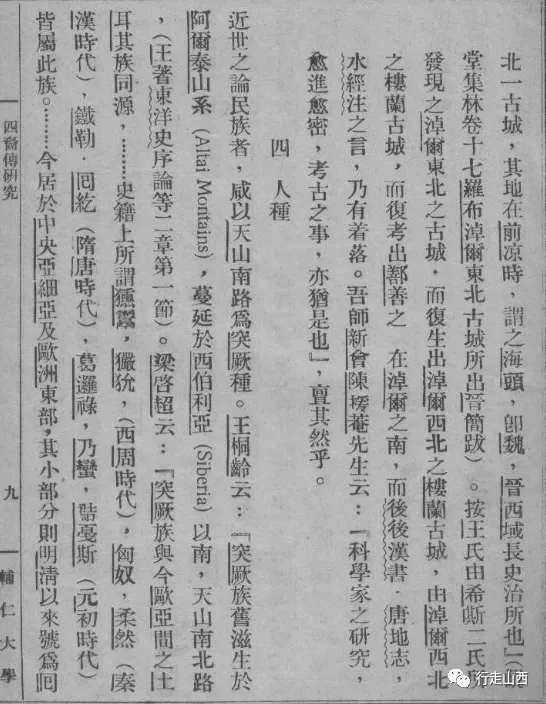 北一古城，其地在前涼時，謂之海頭，卽魏，晉西域長史治所也」（
堂集林卷十七羅布淖爾東北古城所出晉簡跋）。按王氏由希斯二氏所
發現之淖爾東北之古城，而復生出淖爾西北之樓蘭古城，由淖爾西北
之樓蘭古城，而復考出鄯善之 在淖爾之南，而後後漢書·唐地志，
水經注之言，乃有着落。吾師新會陳援菴先生云：『科學家之研究，
愈進愈密，考古之事，亦猶是也」，亶其然乎。
四 人種
近世之論民族者，咸以天山南路爲突厥種。王桐齡云：『突厥族舊滋生於
阿爾泰山系 (Altai Montains)，蔓延於西伯利亞 (Siberia) 以南，天山南北路
，（王著東洋史序論等二章第一節）。梁啓超云：『突厥族與今歐亞間之土
耳其族同源，………史籍上所謂獯鬻，玁狁，（西周時代），匈奴，柔然（秦
漢時代），鐵勒·回紇（隋唐時代），葛邏祿，乃蠻，黠戞斯（元初時代）
皆屬此族。………今居於中央亞細亞及歐洲東部，其小部分則明淸以來號爲回
四裔傳研究
九
輔仁大學
行走山西